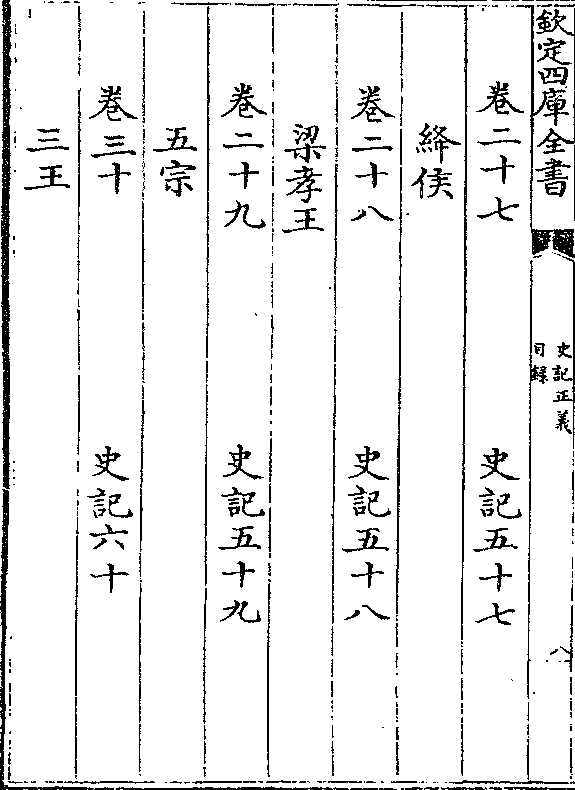 欽定四庫全書
史記正義
目録
八
卷二十七 史記五十七
絳侯
卷二十八 史記五十八
梁孝王
卷二十九 史記五十九
五宗
卷三十 史記六十
三王